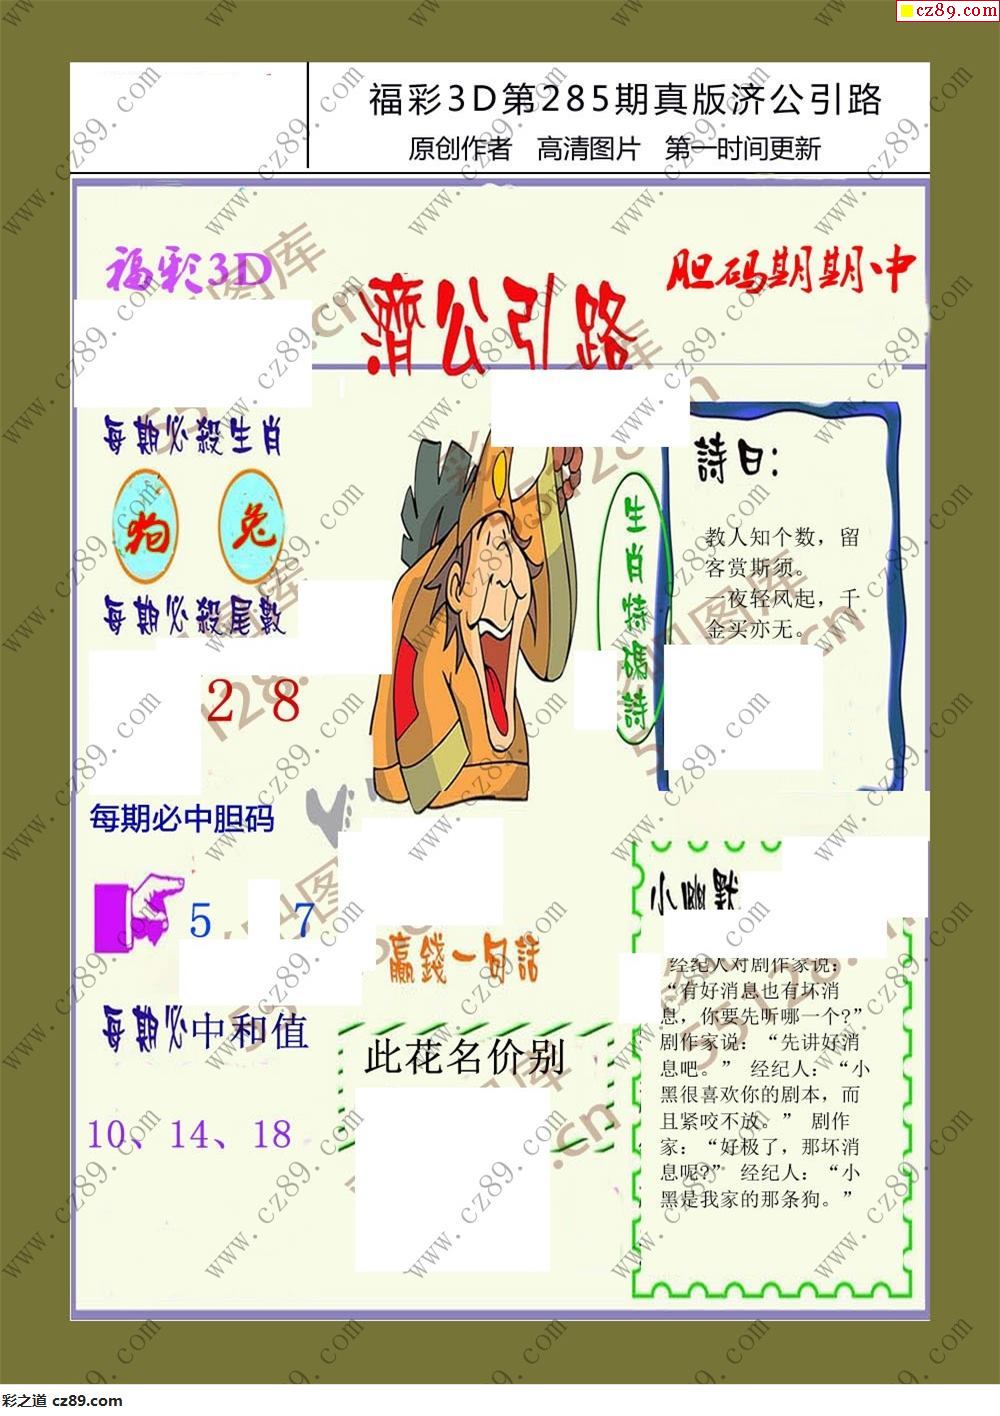 cz89.com
福彩3D第285期真版济公引路
原创作者 高清图片 第一时间更新
福彩3D
濟公引路
胆码期期中
每期必殺生肖
狗 兔
每期必殺尾數
2 8
每期必中胆码
5 7
每期必中和值
10、14、18
生肖特碼詩
詩曰:
教人知个数，留
客赏斯须。
一夜轻风起，千
金买亦无。
贏錢一句話
此花名价别
小幽默
经纪人对剧作家说：
“有好消息也有坏消
息，你要先听哪一个?”
剧作家说：“先讲好消
息吧。” 经纪人：“小
黑很喜欢你的剧本，而
且紧咬不放。” 剧作
家：“好极了，那坏消
息呢?” 经纪人：“小
黑是我家的那条狗。”
www.cz89.com
彩之道 cz89.com